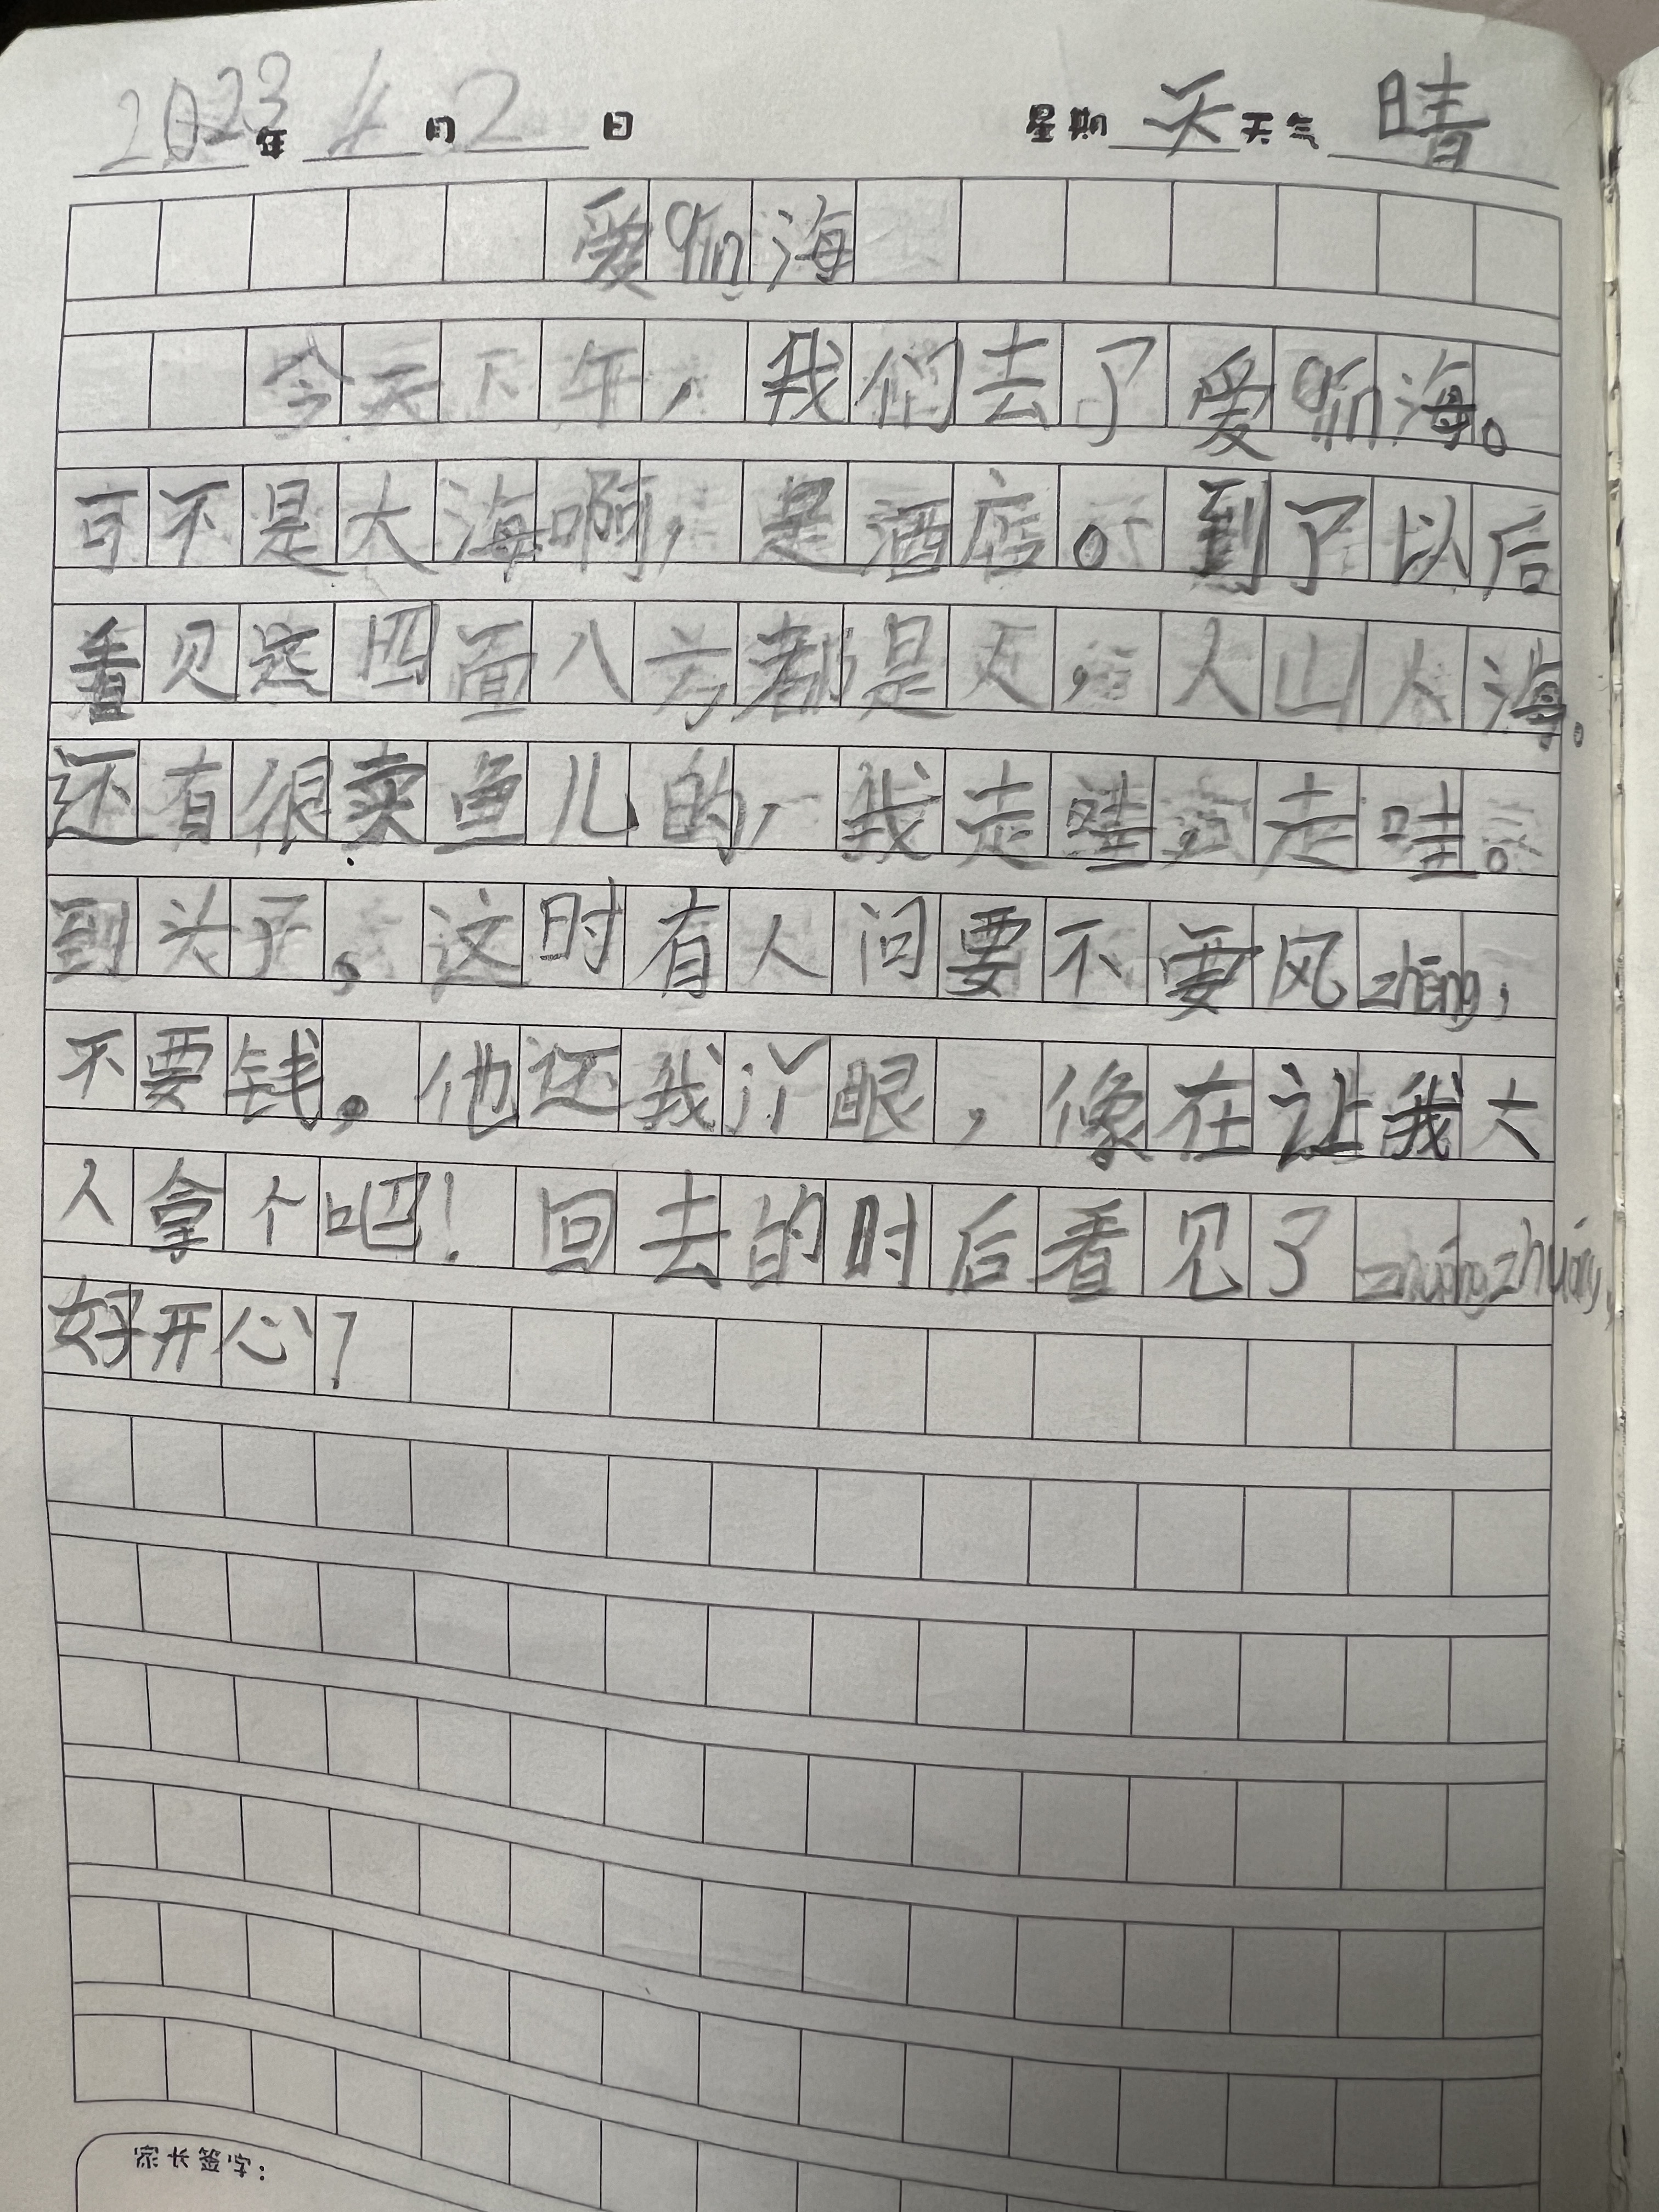 2023年4月2日 星期天天气晴
爱qín海
今天下午，我们去了爱qín海。
可不是大海啊，是酒店。到了以后
看见这四面八方都是人，人山人海。
还有很卖鱼儿的，我走哇走哇。
到头了。这时有人问要不要风zhēng，
不要钱。他还我 眼，像在让我大
人拿个吧！回去的时后看见了zhuāngzhuāng，
好开心！
家长签字：